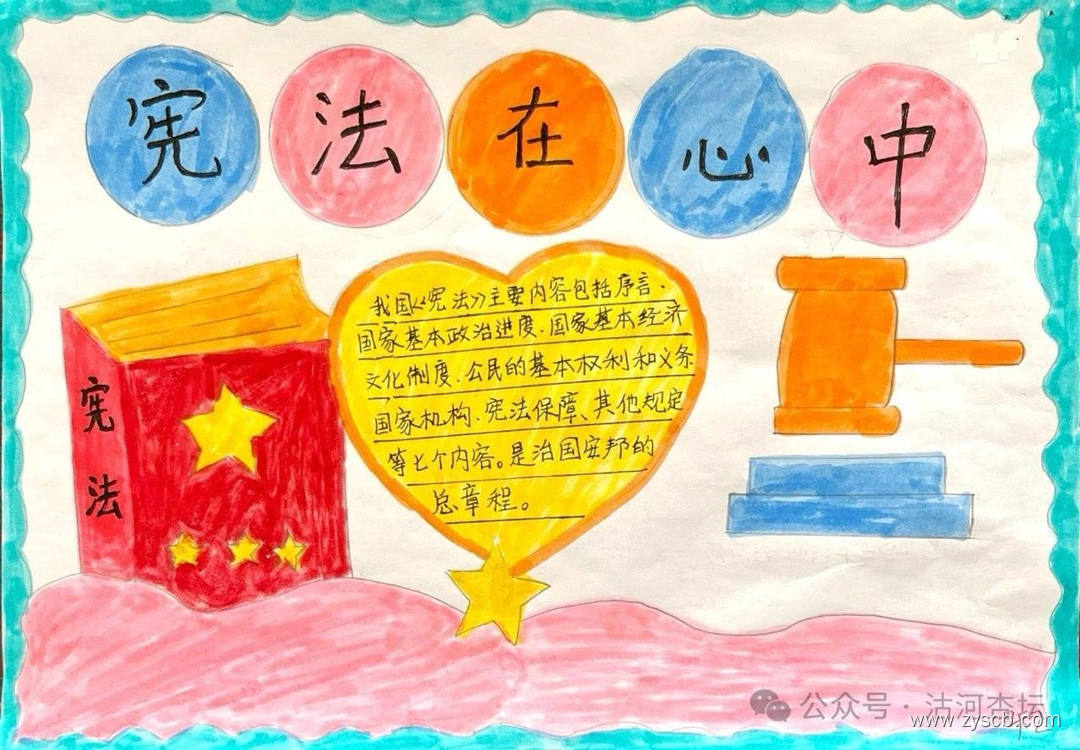 宪法在心中
宪法
我国《宪法》主要内容包括序言、
国家基本政治进度、国家基本经济
文化制度、公民的基本权利和义务
国家机构、宪法保障、其他规定
等七个内容。是治国安邦的
总章程。
公众号·沽河杏坛
www.zyscb.com